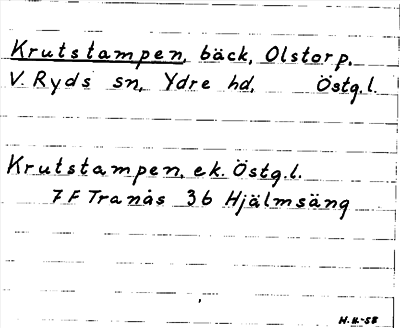 Krutstampen, bäck, Olstorp.
V. Ryds sn, Ydre hd, Östg.l.
Krutstampen, ek. Östg.l.
7 F Tranås 3b Hjälmsäng
H.H.-58